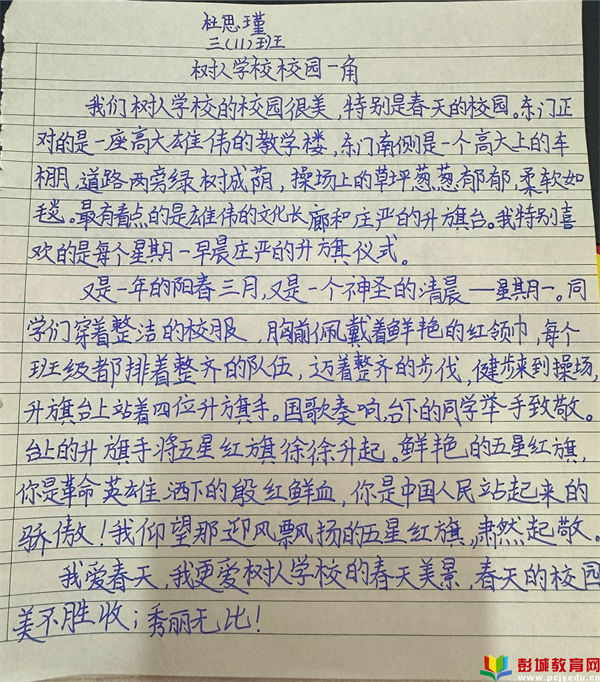 杜思瑾
三（11）班
树人学校校园一角
我们树人学校的校园很美，特别是春天的校园。东门正
对的是一座高大雄伟的教学楼，东门南侧是一个高大上的车
棚，道路两旁绿树成荫，操场上的草坪葱葱郁郁，柔软如
毯。最有看点的是雄伟的文化长廊和庄严的升旗台。我特别喜
欢的是每个星期一早晨庄严的升旗仪式。
又是一年的阳春三月，又是一个神圣的清晨——星期一。同
学们穿着整洁的校服，胸前佩戴着鲜艳的红领巾，每个
班级都排着整齐的队伍，迈着整齐的步伐，健步来到操场，
升旗台上站着四位升旗手。国歌奏响，台下的同学举手致敬。
台上的升旗手将五星红旗徐徐升起。鲜艳的五星红旗，
你是革命英雄洒下的殷红鲜血，你是中国人民站起来的
骄傲！我仰望那迎风飘扬的五星红旗，肃然起敬。
我爱春天，我更爱树人学校的春天美景，春天的校园
美不胜收；秀丽无比！
彭城教育网
www.pcjyedu.cn